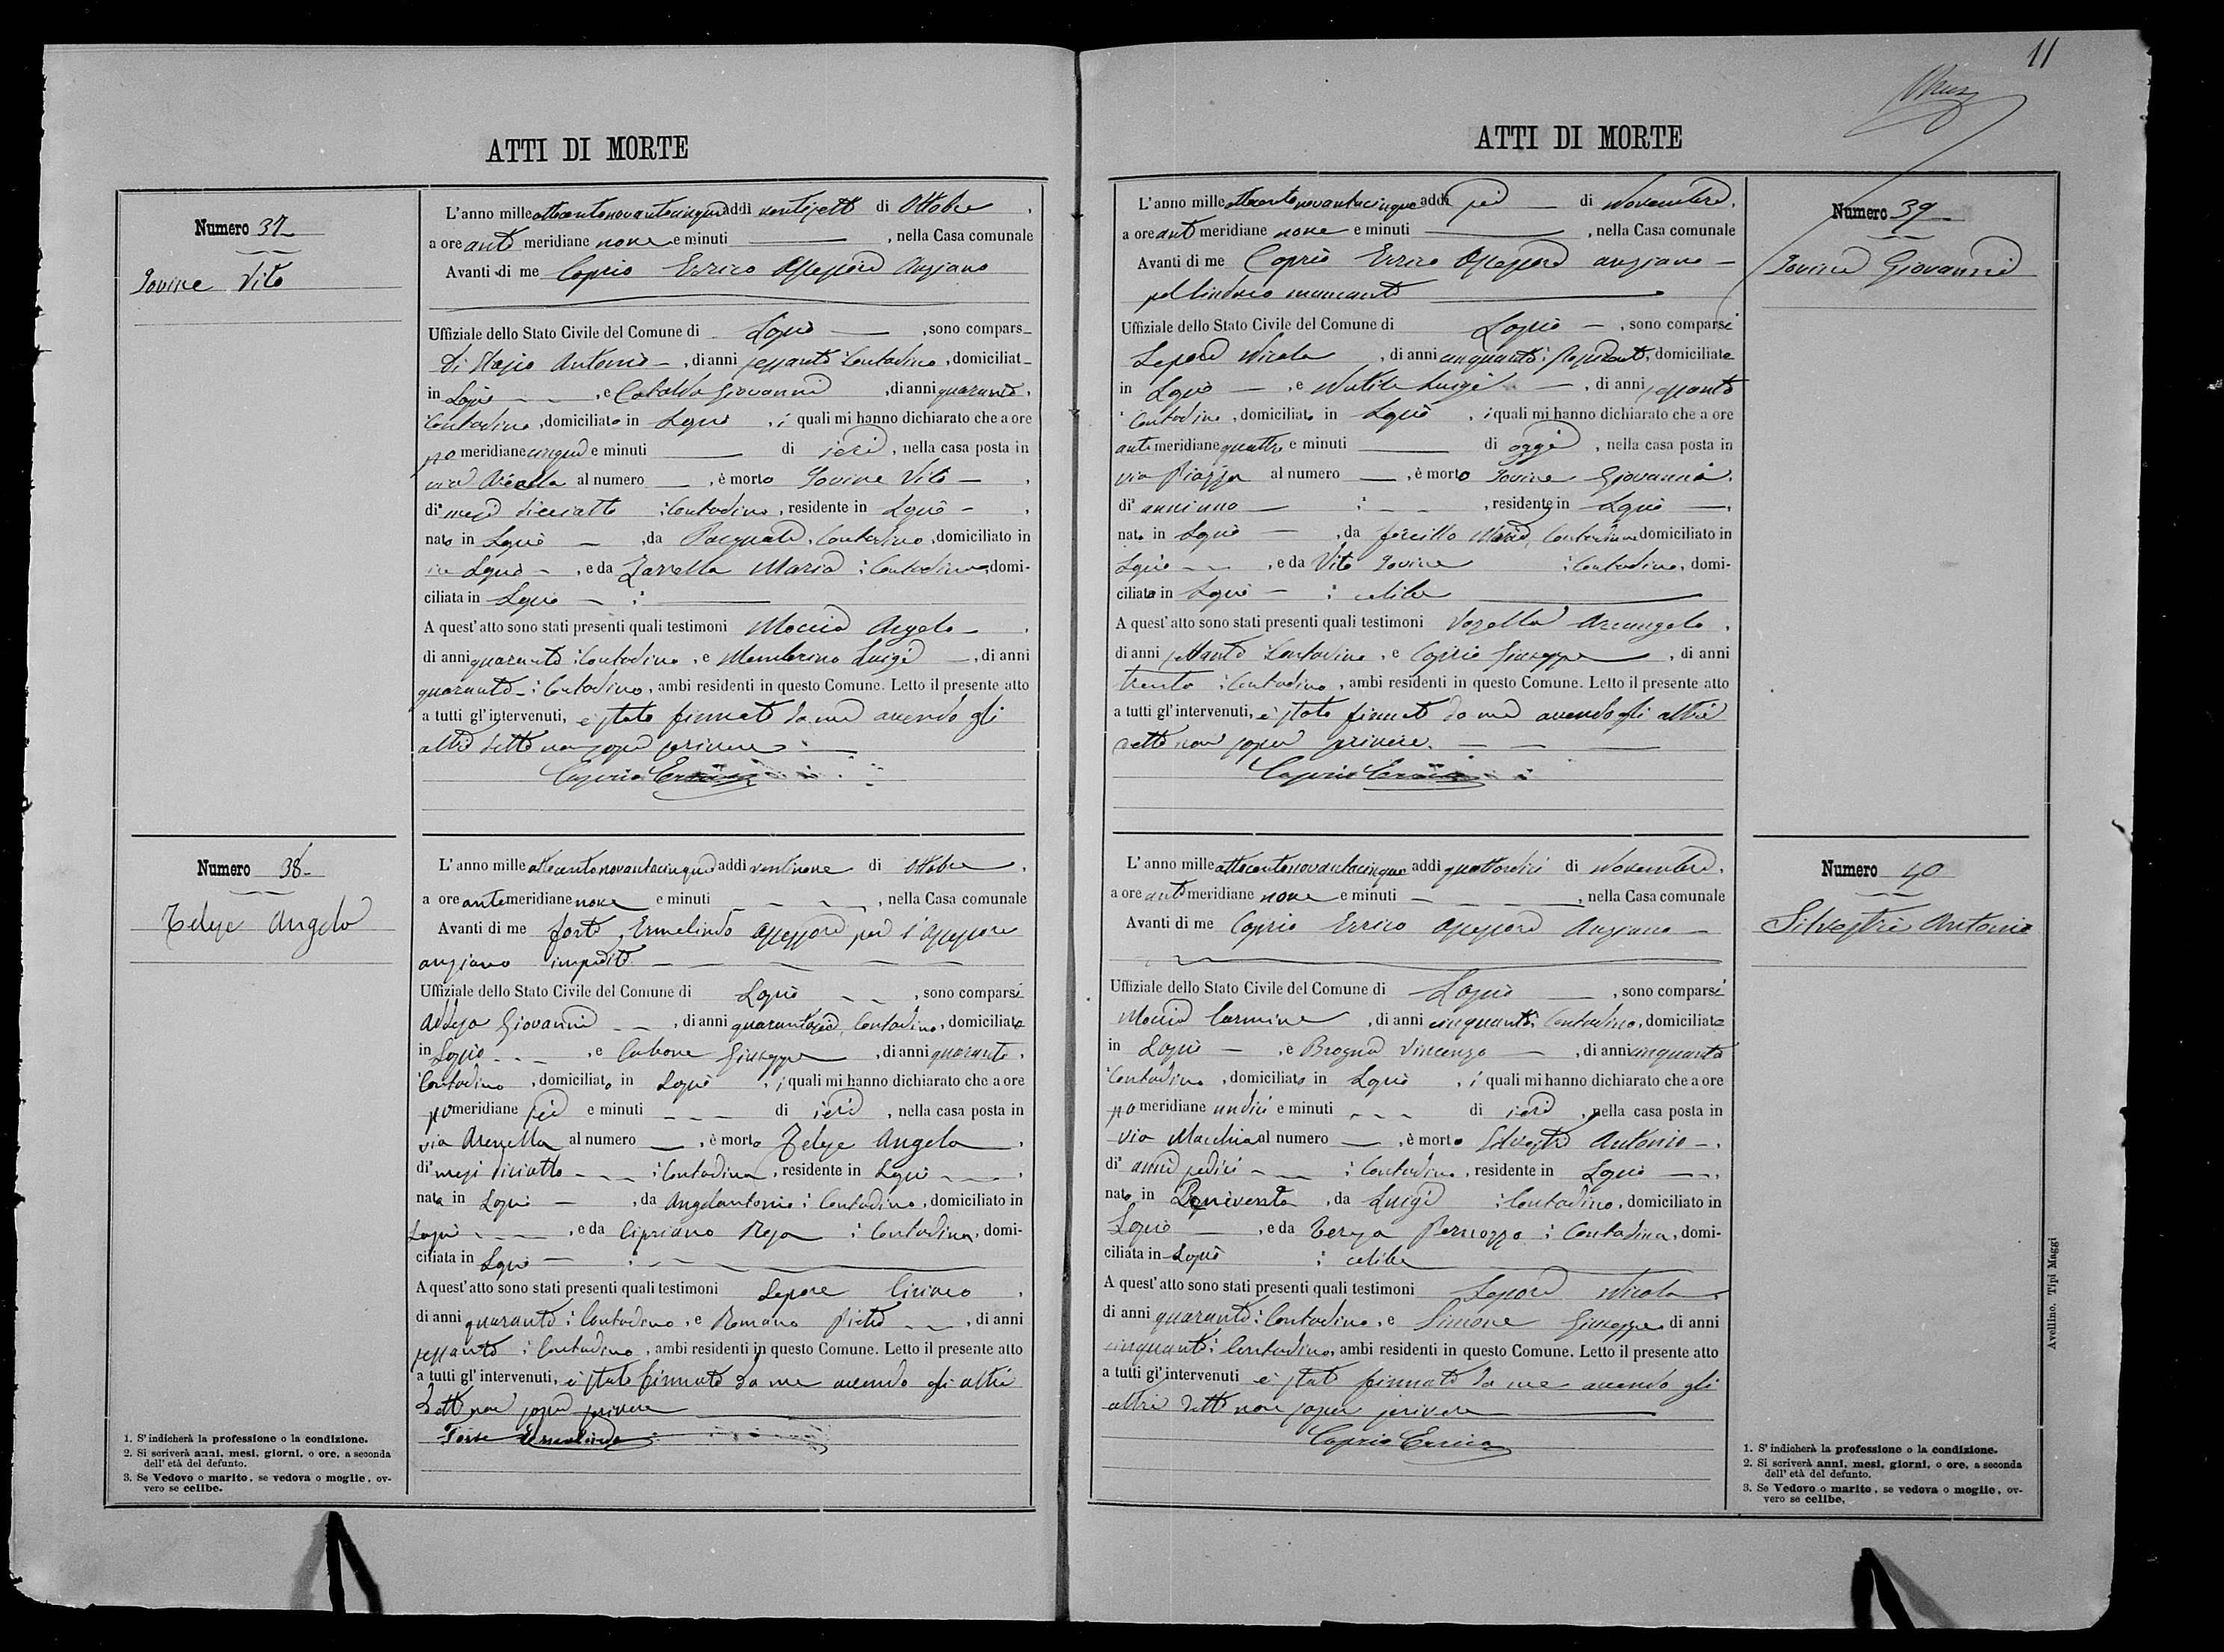 11
ATTI DI MORTE
Numero 37
Iovine Vito
L'anno mille ottocentonovantacinque addi ventisette di Ottobre,
a ore ante meridiane nove e minuti — , nella Casa comunale
Avanti di me Caprio Errico Assessore Anziano
Uffiziale dello Stato Civile del Comune di — , sono compars
Di Antonio — , di anni sessanta Contadino, domiciliat
in — , e Cataldo Giovanni , di anni quaranta,
Contadino, domiciliato in , i quali mi hanno dichiarato che a ore
po meridiane cinque e minuti — di ieri, nella casa posta in
via al numero — , è morto Iovine Vito — ,
di mesi diciotto : Contadino, residente in — ,
nato in — , da Pasquale, Contadino, domiciliato in
in — , e da Zarrella Maria : Contadina, domi-
ciliata in — : —
A quest'atto sono stati presenti quali testimoni Moccia Angelo — ,
di anni quaranta : Contadino, e Membrino Luigi — , di anni
quaranta — : Contadino, ambi residenti in questo Comune. Letto il presente atto
a tutti gl'intervenuti, è stato firmato da me avendo gli
altri detto non saper scrivere. —
Caprio Errico
Numero 38
Telese Angela
L'anno mille ottocentonovantacinque addi ventinove di Ottobre,
a ore ante meridiane nove e minuti — , nella Casa comunale
Avanti di me Forte Ermelindo Assessore per l'Assessore
anziano impedito —
Uffiziale dello Stato Civile del Comune di — , sono comparsi
Giovanni — , di anni quarantasei, Contadino, domiciliato
in — , e Giuseppe , di anni quaranta,
Contadino, domiciliato in , i quali mi hanno dichiarato che a ore
po meridiane sei e minuti — di ieri, nella casa posta in
via al numero — , è morta Telese Angela ,
di mesi diciotto — : Contadina, residente in — ,
nata in — , da Angelantonio : Contadino, domiciliato in
— , e da Cipriano Rosa : Contadina, domi-
ciliata in — : —
A quest'atto sono stati presenti quali testimoni Lepore Ciriaco ,
di anni quaranta : Contadino, e Romano Pietro — , di anni
sessanta : Contadino, ambi residenti in questo Comune. Letto il presente atto
a tutti gl'intervenuti, è stato firmato da me avendo gli altri
detto non saper scrivere —
Forte Ermelindo
1. S'indicherà la professione o la condizione.
2. Si scriverà anni, mesi, giorni, o ore, a seconda
dell'età del defunto.
3. Se Vedovo o marito, se vedova o moglie, ov-
vero se celibe.
ATTI DI MORTE
Numero 39
Iovine Giovanni
L'anno mille ottocentonovantacinque addi sei — di Novembre,
a ore ante meridiane nove e minuti — , nella Casa comunale
Avanti di me Caprio Errico Assessore anziano —
pel Sindaco mancante —
Uffiziale dello Stato Civile del Comune di — , sono comparsi
Lepore Nicola , di anni cinquanta : , domiciliato
in — , e Luigi — , di anni sessanta
: Contadino, domiciliato in , i quali mi hanno dichiarato che a ore
ante meridiane quattro e minuti — di oggi , nella casa posta in
via Piazza al numero — , è morto Iovine Giovanni,
di anni uno — : — , residente in — ,
nato in — , da Maria, Contadina domiciliato in
— , e da Vito Iovine : Contadino, domi-
ciliato in — : celibe —
A quest'atto sono stati presenti quali testimoni Arcangelo ,
di anni settanta Contadino, e Caprio Giuseppe , di anni
trenta : Contadino, ambi residenti in questo Comune. Letto il presente atto
a tutti gl'intervenuti, è stato firmato da me avendo gli altri
detto non saper scrivere. —
Caprio Errico
Numero 40
Silvestri Antonio
L'anno mille ottocentonovantacinque addi quattordici di Novembre,
a ore ante meridiane nove e minuti — , nella Casa comunale
Avanti di me Caprio Errico Assessore Anziano —
Uffiziale dello Stato Civile del Comune di — , sono comparsi
Moccia Carmine , di anni cinquanta : Contadino, domiciliato
in — , e Brogna Vincenzo — , di anni cinquanta
Contadino, domiciliato in , i quali mi hanno dichiarato che a ore
po meridiane undici e minuti — di ieri , nella casa posta in
via Macchia al numero — , è morto Silvestri Antonio — ,
di anni sedici — : Contadino, residente in — ,
nato in Benevento , da Luigi : Contadino, domiciliato in
— , e da : Contadina, domi-
ciliata in : celibe —
A quest'atto sono stati presenti quali testimoni Lepore Nicola ,
di anni quaranta : Contadino, e Simone Giuseppe di anni
cinquanta : Contadino, ambi residenti in questo Comune. Letto il presente atto
a tutti gl'intervenuti è stato firmato da me avendo gli
altri detto non saper scrivere —
Caprio Errico
1. S'indicherà la professione o la condizione.
2. Si scriverà anni, mesi, giorni, o ore, a seconda
dell'età del defunto.
3. Se Vedovo o marito, se vedova o moglie, ov-
vero se celibe.
Avellino. Tipi Maggi